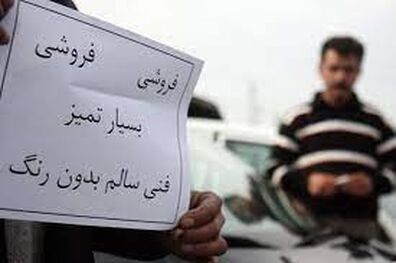 فروشی فروشی فروشی
بسیار تمیز
فنی سالم بدون رنگ